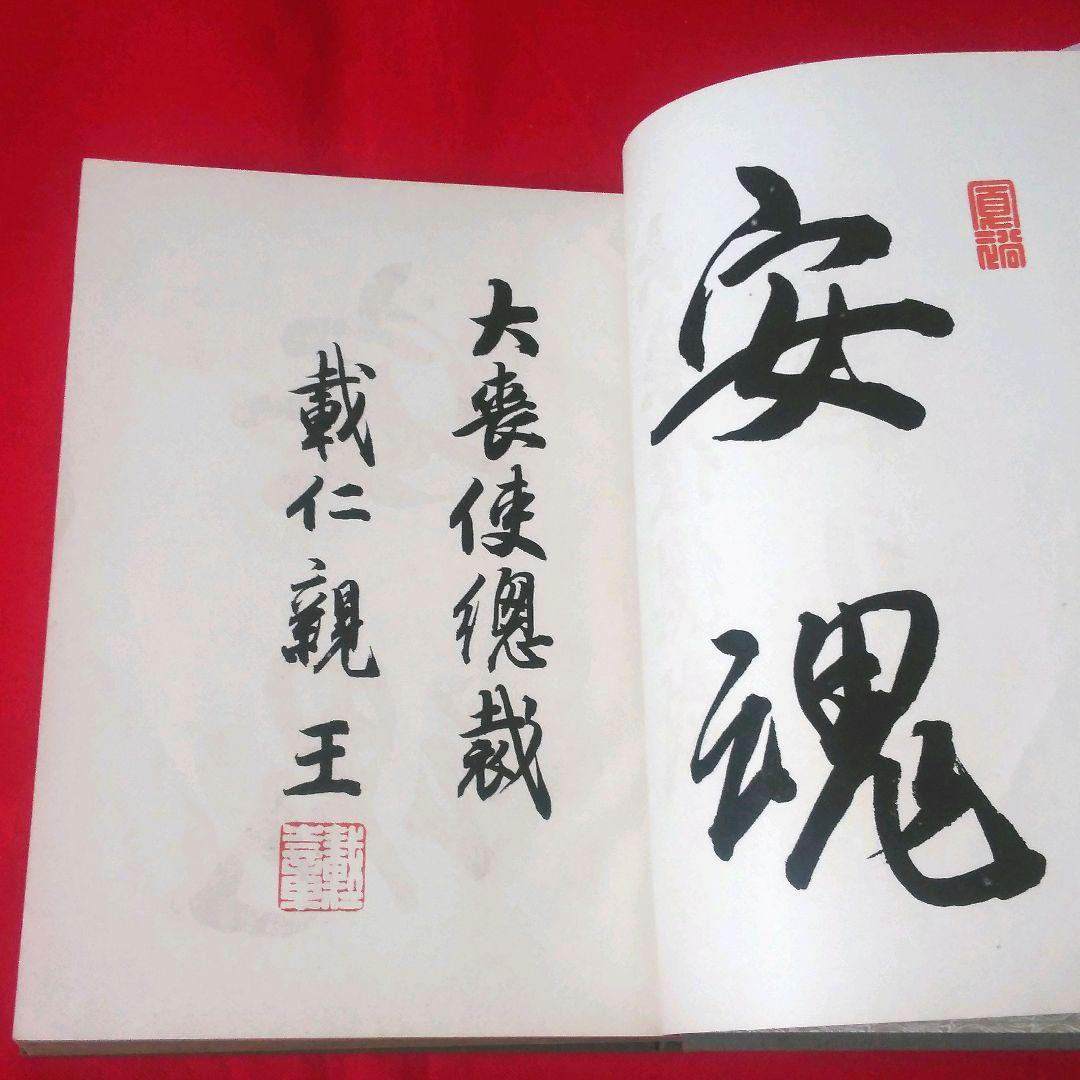 安魂
大喪使總裁
載仁親王